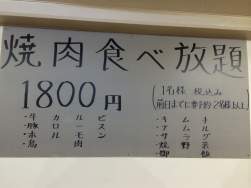 焼肉食べ放題
1800円
(1名様 税込み
前日までに要予約2名様以上)
・牛カルビ
・豚ロース
・ホルモン
・鳥肉
・キムチ
・ナムル
・サラダ
・焼野菜
・御飯